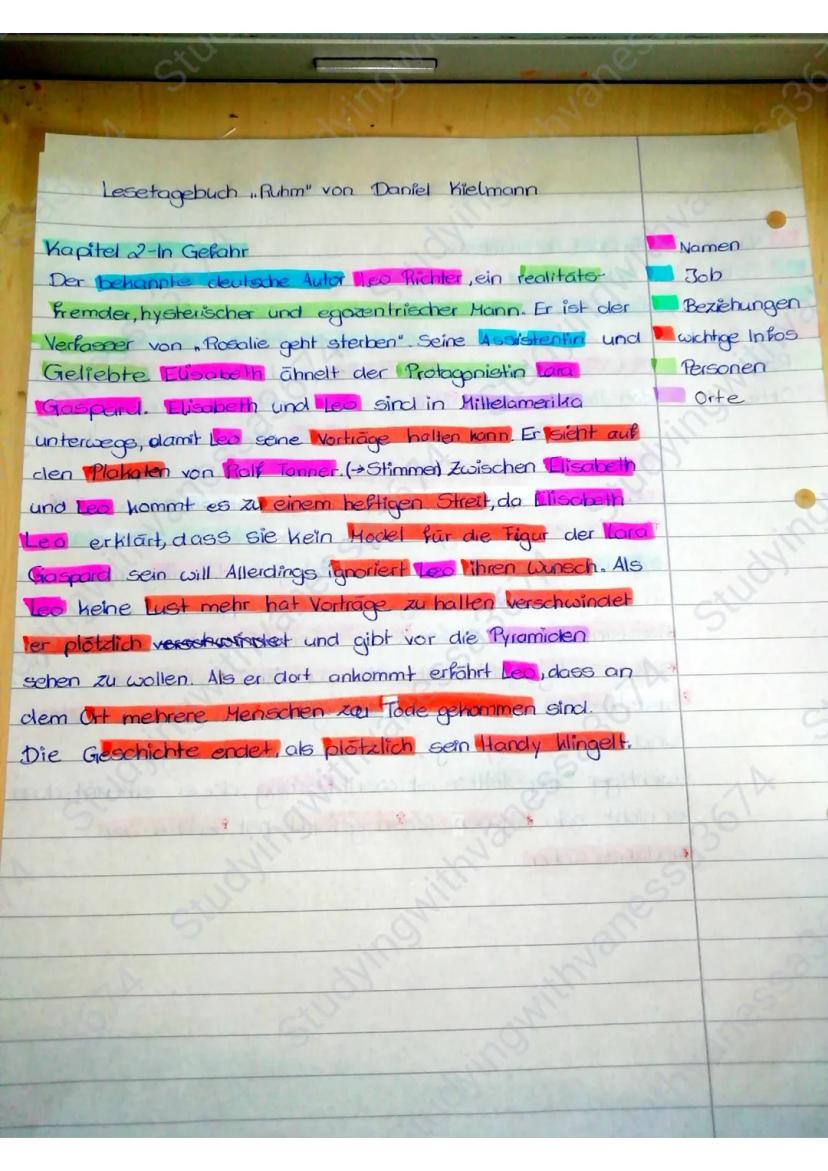 Lesetagebuch „Ruhm" von Daniel Kielmann
Kapitel 2-In Gefahr
Der bekannte deutsche Autor Leo Richter, ein realitäts-
fremder, hysterischer und egozentrischer Mann. Er ist der
Verfasser von „Rosalie geht sterben". Seine Assistentin und
Geliebte Elisabeth ähnelt der Protagonistin Lara
Gaspard. Elisabeth und Leo sind in Mittelamerika
unterwegs, damit Leo seine Vorträge halten kann. Er sieht auf
den Plakaten von Ralf Tanner. (→Stimmen) Zwischen Elisabeth
und Leo kommt es zu einem heftigen Streit, da Elisabeth
Leo erklärt, dass sie kein Model für die Figur der Lara
Gaspard sein will Allerdings ignoriert Leo ihren Wunsch. Als
Leo keine Lust mehr hat Vorträge zu halten verschwindet
er plötzlich verschwindet und gibt vor die Pyramiden
sehen zu wollen. Als er dort ankommt erfährt Leo, dass an
dem Ort mehrere Menschen zu Tode gekommen sind.
Die Geschichte endet, als plötzlich sein Handy klingelt.
Namen
Job
Beziehungen
wichtge Infos
Personen
Orte
Studyingwithvanessa3674